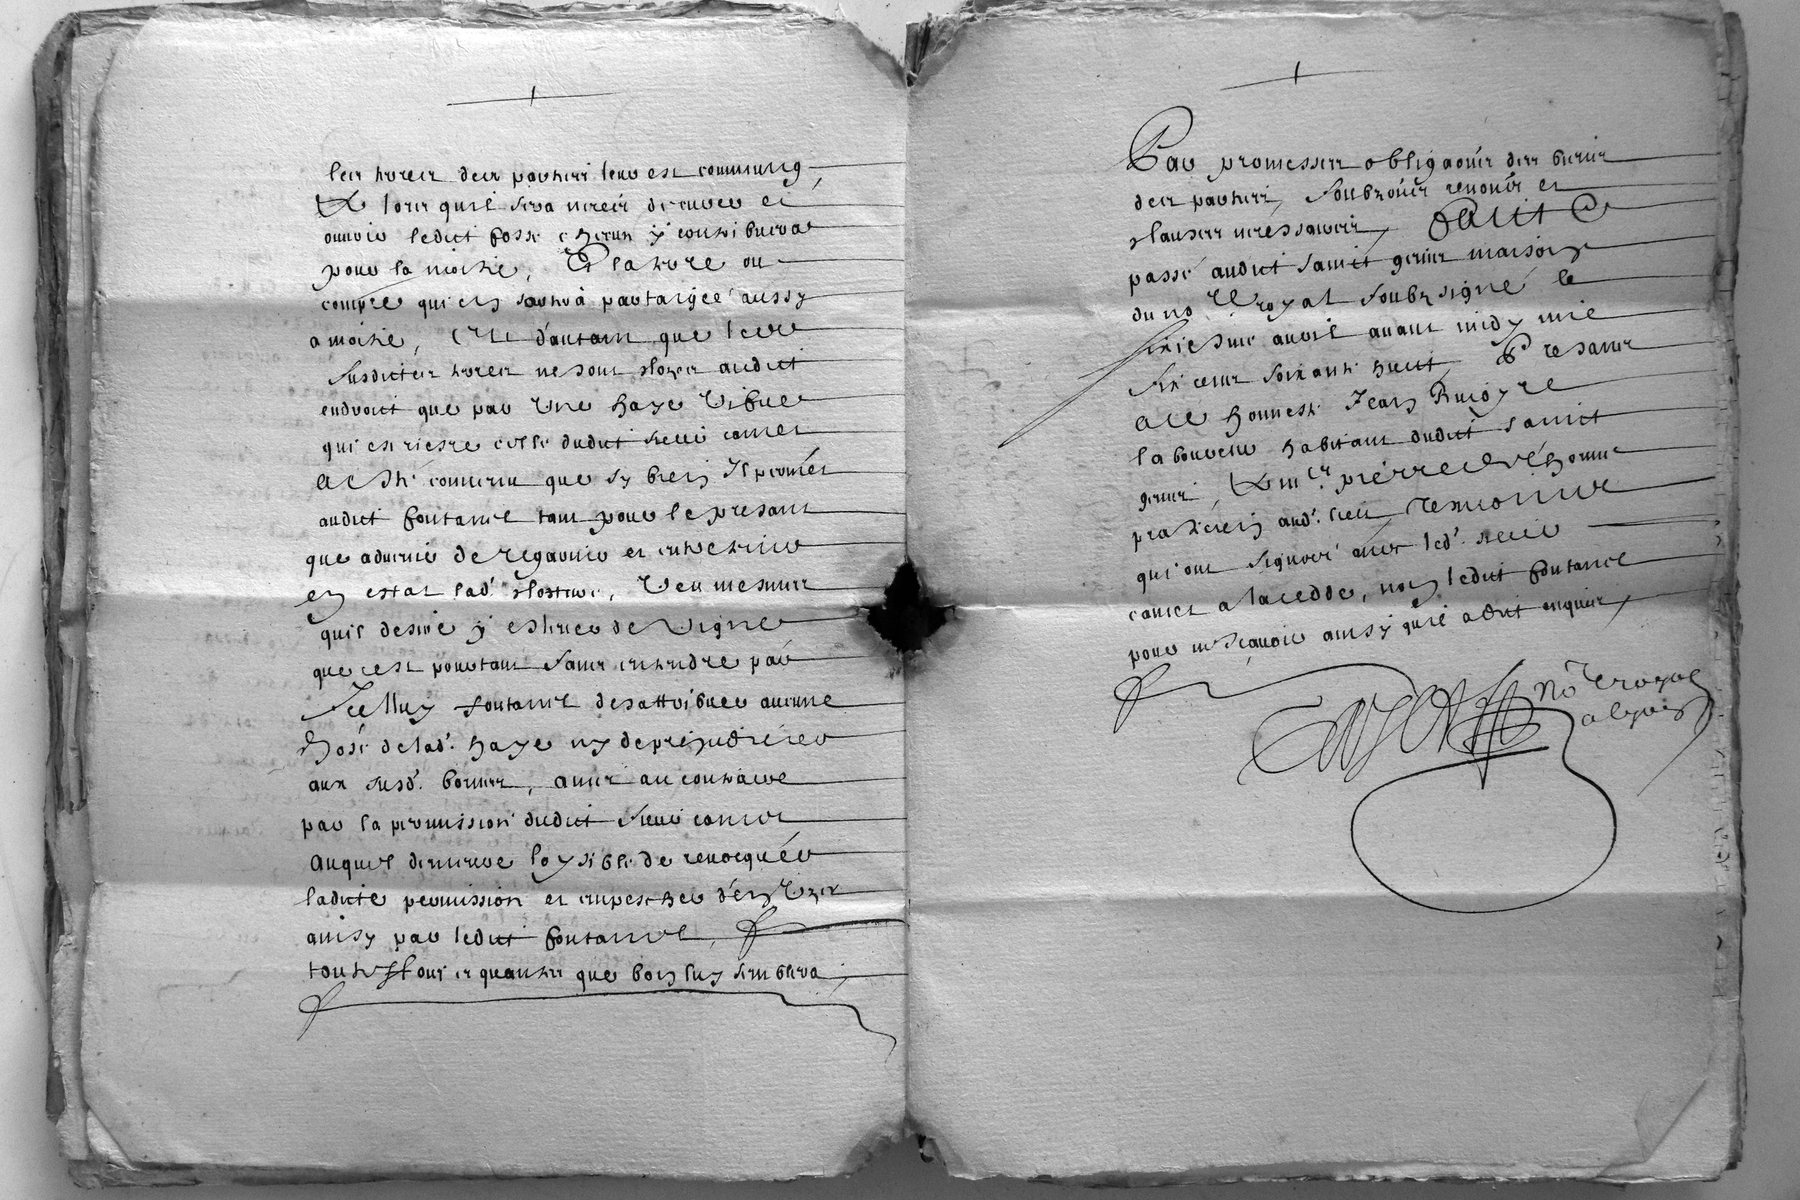 les terres des parties leur est commung,
Et lors quil sera necess.re de curer et
ouurir ledict fossé chacun y contribuera
pour la moitié, Et la terre ou
compee qui en sortira partaigée aussy
a moitié, Et d'autant que leurs
susdictes terres ne sont closes audict
endroit que par une haye vifue
qui est riere celle dudict sieur comer
a esté conuenu que sy bien Il permet
audict fontanel tant pour le presant
que aduenir de regarnir et entretenir
en estat lad. closture, veu mesmes
quil desire y eslever de vigne
que c'est pourtant sans entendre par
Icelluy fontanel desattribuer aucune
chose de lad. haye ny de prejudicier
aux susd. bornes, ains au contraire
par la permission dudict sieur comer
auquel demeure loysible de reuocquer
ladicte permission et empescher d'en User
ainsy par ledict fontanel,
toutesffois et quantes que bon luy semblera,
Par promesses obliga͠ons des biens
des parties, soubz͠ons reno͠ns et
clauses necessaires, Faict et
passé audict sainct genies maison
du no.re royal soubzsigné le
sixiesme auril auant midy mil
six cens soixante huict, Presans
a ce honneste Jean
laboureur habitant dudict sainct
genies, Et m.re pierre
praticien aud. lieu, tesmoins
qui ont signés auec led. sieur
comer a la cedde, non ledict fontanel
pour ne scauoir ainsy quil a dict enquis,
no.re royal